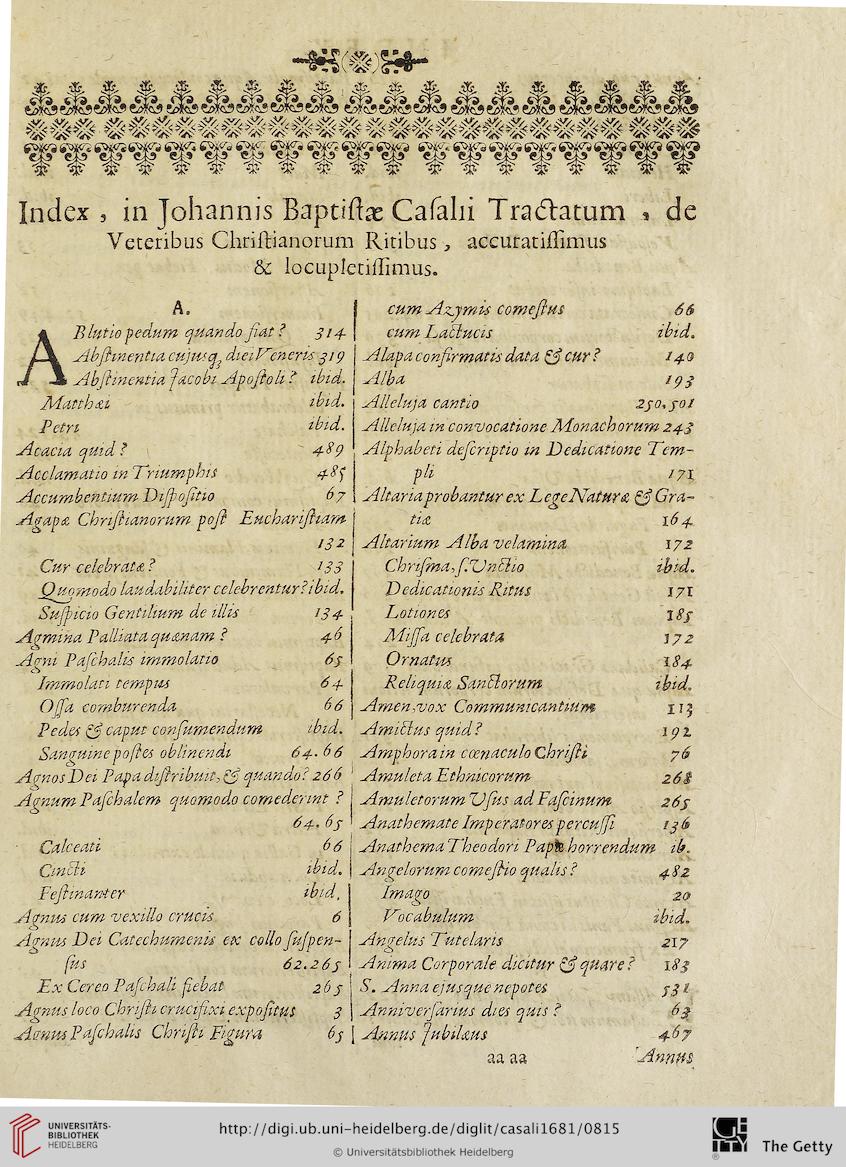 Index, in Johannis Baptiſtæ Caſalii Tractatum, de
Veteribus Chriſtianorum Ritibus, accuratiſſimus
& locupletiſſimus.
A.
ABlutio pedum quando fiat? 314
Abſtinentia cujusq; diei Veneris 319
Abſtinentia Jacobi Apoſtoli? ibid.
Matthæi ibid.
Petri ibid.
Acacia quid? 489
Acclamatio in Triumphis 485
Accumbentium Diſpoſitio 67
Agapæ Chriſtianorum poſt Euchariſtiam
132
Cur celebratæ? 133
Quomodo laudabiliter celebrentur? ibid.
Suſpicio Gentilium de illis 134
Agmina Palliata quænam? 46
Agni Paſchalis immolatio 65
Immolati tempus 64
Oſſa comburenda 66
Pedes & caput conſumendum ibid.
Sanguine poſtes oblinendi 64. 66
Agnos Dei Papa diſtribuit, & quando? 266
Agnum Paſchalem quomodo comederint?
64. 65
Calceati 66
Cincti ibid.
Feſtinanter ibid.
Agnus cum vexillo crucis 6
Agnus Dei Catechumenis ex collo ſuſpen-
ſus 62. 265
Ex Cereo Paſchali fiebat 265
Agnus loco Chriſti crucifixi expoſitus 3
Agnus Paſchalis Chriſti Figura 65
cum Azymis comeſtus 66
cum Lactucis ibid.
Alapa confirmatis data & cur? 140
Alba 193
Alleluja cantio 250. 501
Alleluja in convocatione Monachorum 243
Alphabeti deſcriptio in Dedicatione Tem-
pli 171
Altaria probantur ex Lege Naturæ & Gra-
tiæ 164
Altarium Alba velamina 172
Chriſma, ſ. Unctio ibid.
Dedicationis Ritus 171
Lotiones 185
Miſſa celebrata 172
Ornatus 184
Reliquiæ Sanctorum ibid.
Amen, vox Communicantium 113
Amictus quid? 192
Amphora in cœnaculo Chriſti 76
Amuleta Ethnicorum 268
Amuletorum Uſus ad Faſcinum 265
Anathemate Imperatores percuſſi 136
Anathema Theodori Papæ horrendum ib.
Angelorum comeſtio qualis? 482
Imago 20
Vocabulum ibid.
Angelus Tutelaris 217
Anima Corporale dicitur & quare? 183
S. Anna ejusque nepotes 531
Anniverſarius dies quis? 63
Annus Jubilæus 467
aa aa Annus
UNIVERSITÄTS-
BIBLIOTHEK
HEIDELBERG
http://digi.ub.uni-heidelberg.de/diglit/casali1681/0815
© Universitätsbibliothek Heidelberg
GETTY
The Getty